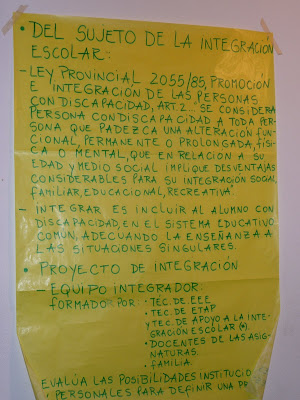 • DEL SUJETO DE LA INTEGRACIÓN
ESCOLAR:
- LEY PROVINCIAL 2055/85, PROMOCIÓN
E INTEGRACIÓN DE LAS PERSONAS
CON DISCAPACIDAD, ART.2 "SE CONSIDERA
PERSONA CON DISCAPACIDAD A TODA PER-
SONA QUE PADEZCA UNA ALTERACIÓN FUN-
CIONAL, PERMANENTE O PROLONGADA, FÍSI-
CA O MENTAL, QUE EN RELACIÓN A SU
EDAD Y MEDIO SOCIAL IMPLIQUE DESVENTAJAS
CONSIDERABLES PARA SU INTEGRACIÓN SOCIAL
FAMILIAR, EDUCACIONAL, RECREATIVA".
- INTEGRAR ES INCLUIR AL ALUMNO CON
DISCAPACIDAD, EN EL SISTEMA EDUCATIVO
COMÚN, ADECUANDO LA ENSEÑANZA A
LAS SITUACIONES SINGULARES.
• PROYECTO DE INTEGRACIÓN
- EQUIPO INTEGRADOR:
FORMADO POR: • TEC. DE EEE
• TEC. DE ETAP
Y TEC. DE APOYO A LA INTE-
GRACIÓN ESCOLAR (*).
• DOCENTES DE LAS ASIG-
NATURAS.
• FAMILIA.
EVALÚA LAS POSIBILIDADES INSTITUCIO
PERSONALES PARA DEFINIR UNA PR